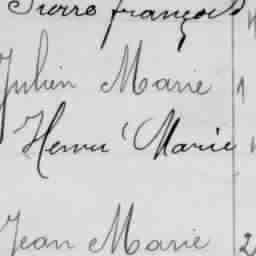 Pierre françois
Julien Marie 1
Henri Marie
Jean Marie 2